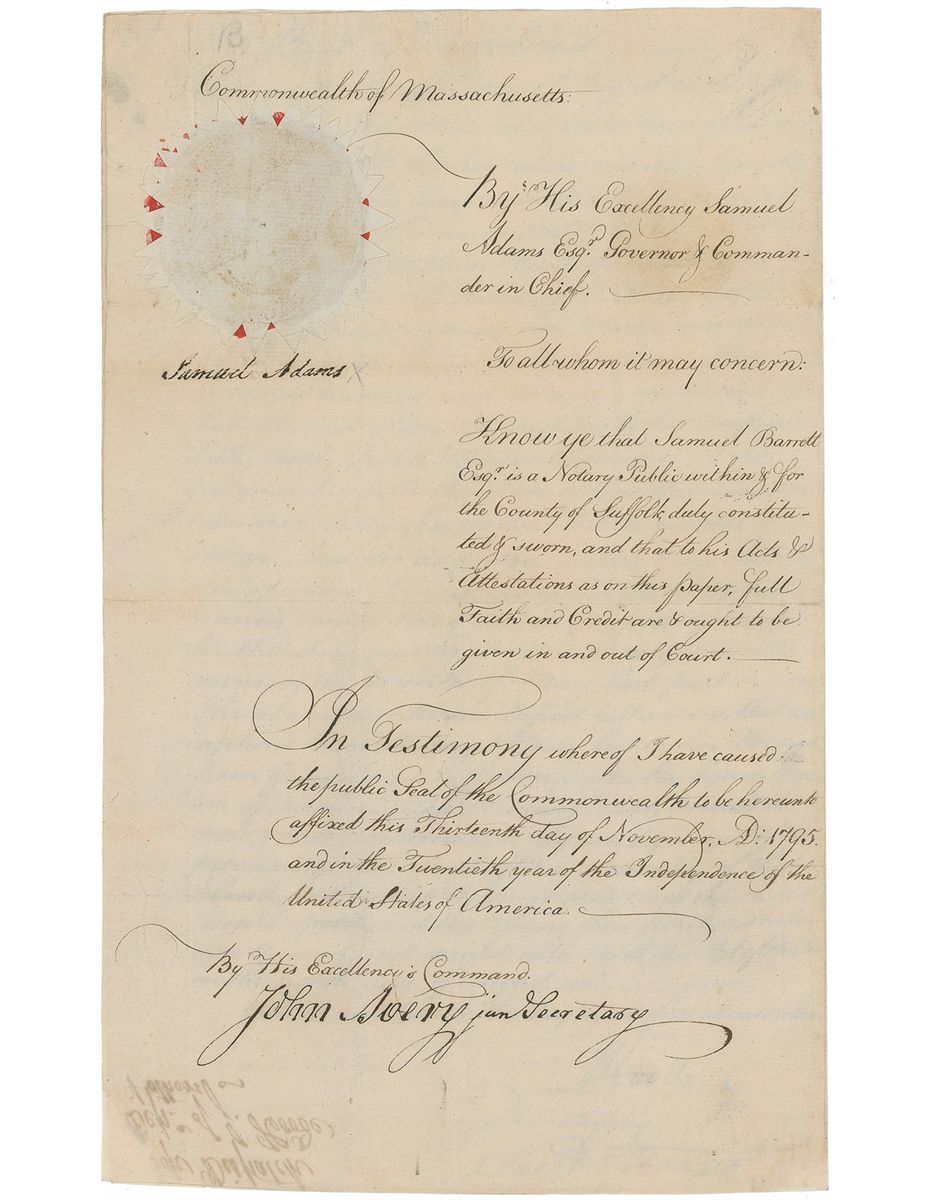 B
Commonwealth of Massachusetts:
By His Excellency Samuel
Adams Esqr. Governor & Comman-
der in Chief.
Samuel Adams
To all whom it may concern:
Know ye that Samuel Barrett
Esqr. is a Notary Public within & for
the County of Suffolk, duly constitu-
ted & sworn, and that to his Acts &
Attestations as on this paper, full
Faith and Credit are & ought to be
given in and out of Court.
In Testimony whereof I have caused
the public Seal of the Commonwealth to be hereunto
affixed this Thirteenth day of November, AD: 1795.
and in the Twentieth year of the Independence of the
United States of America.
By His Excellency's Command.
John Avery jun Secretary